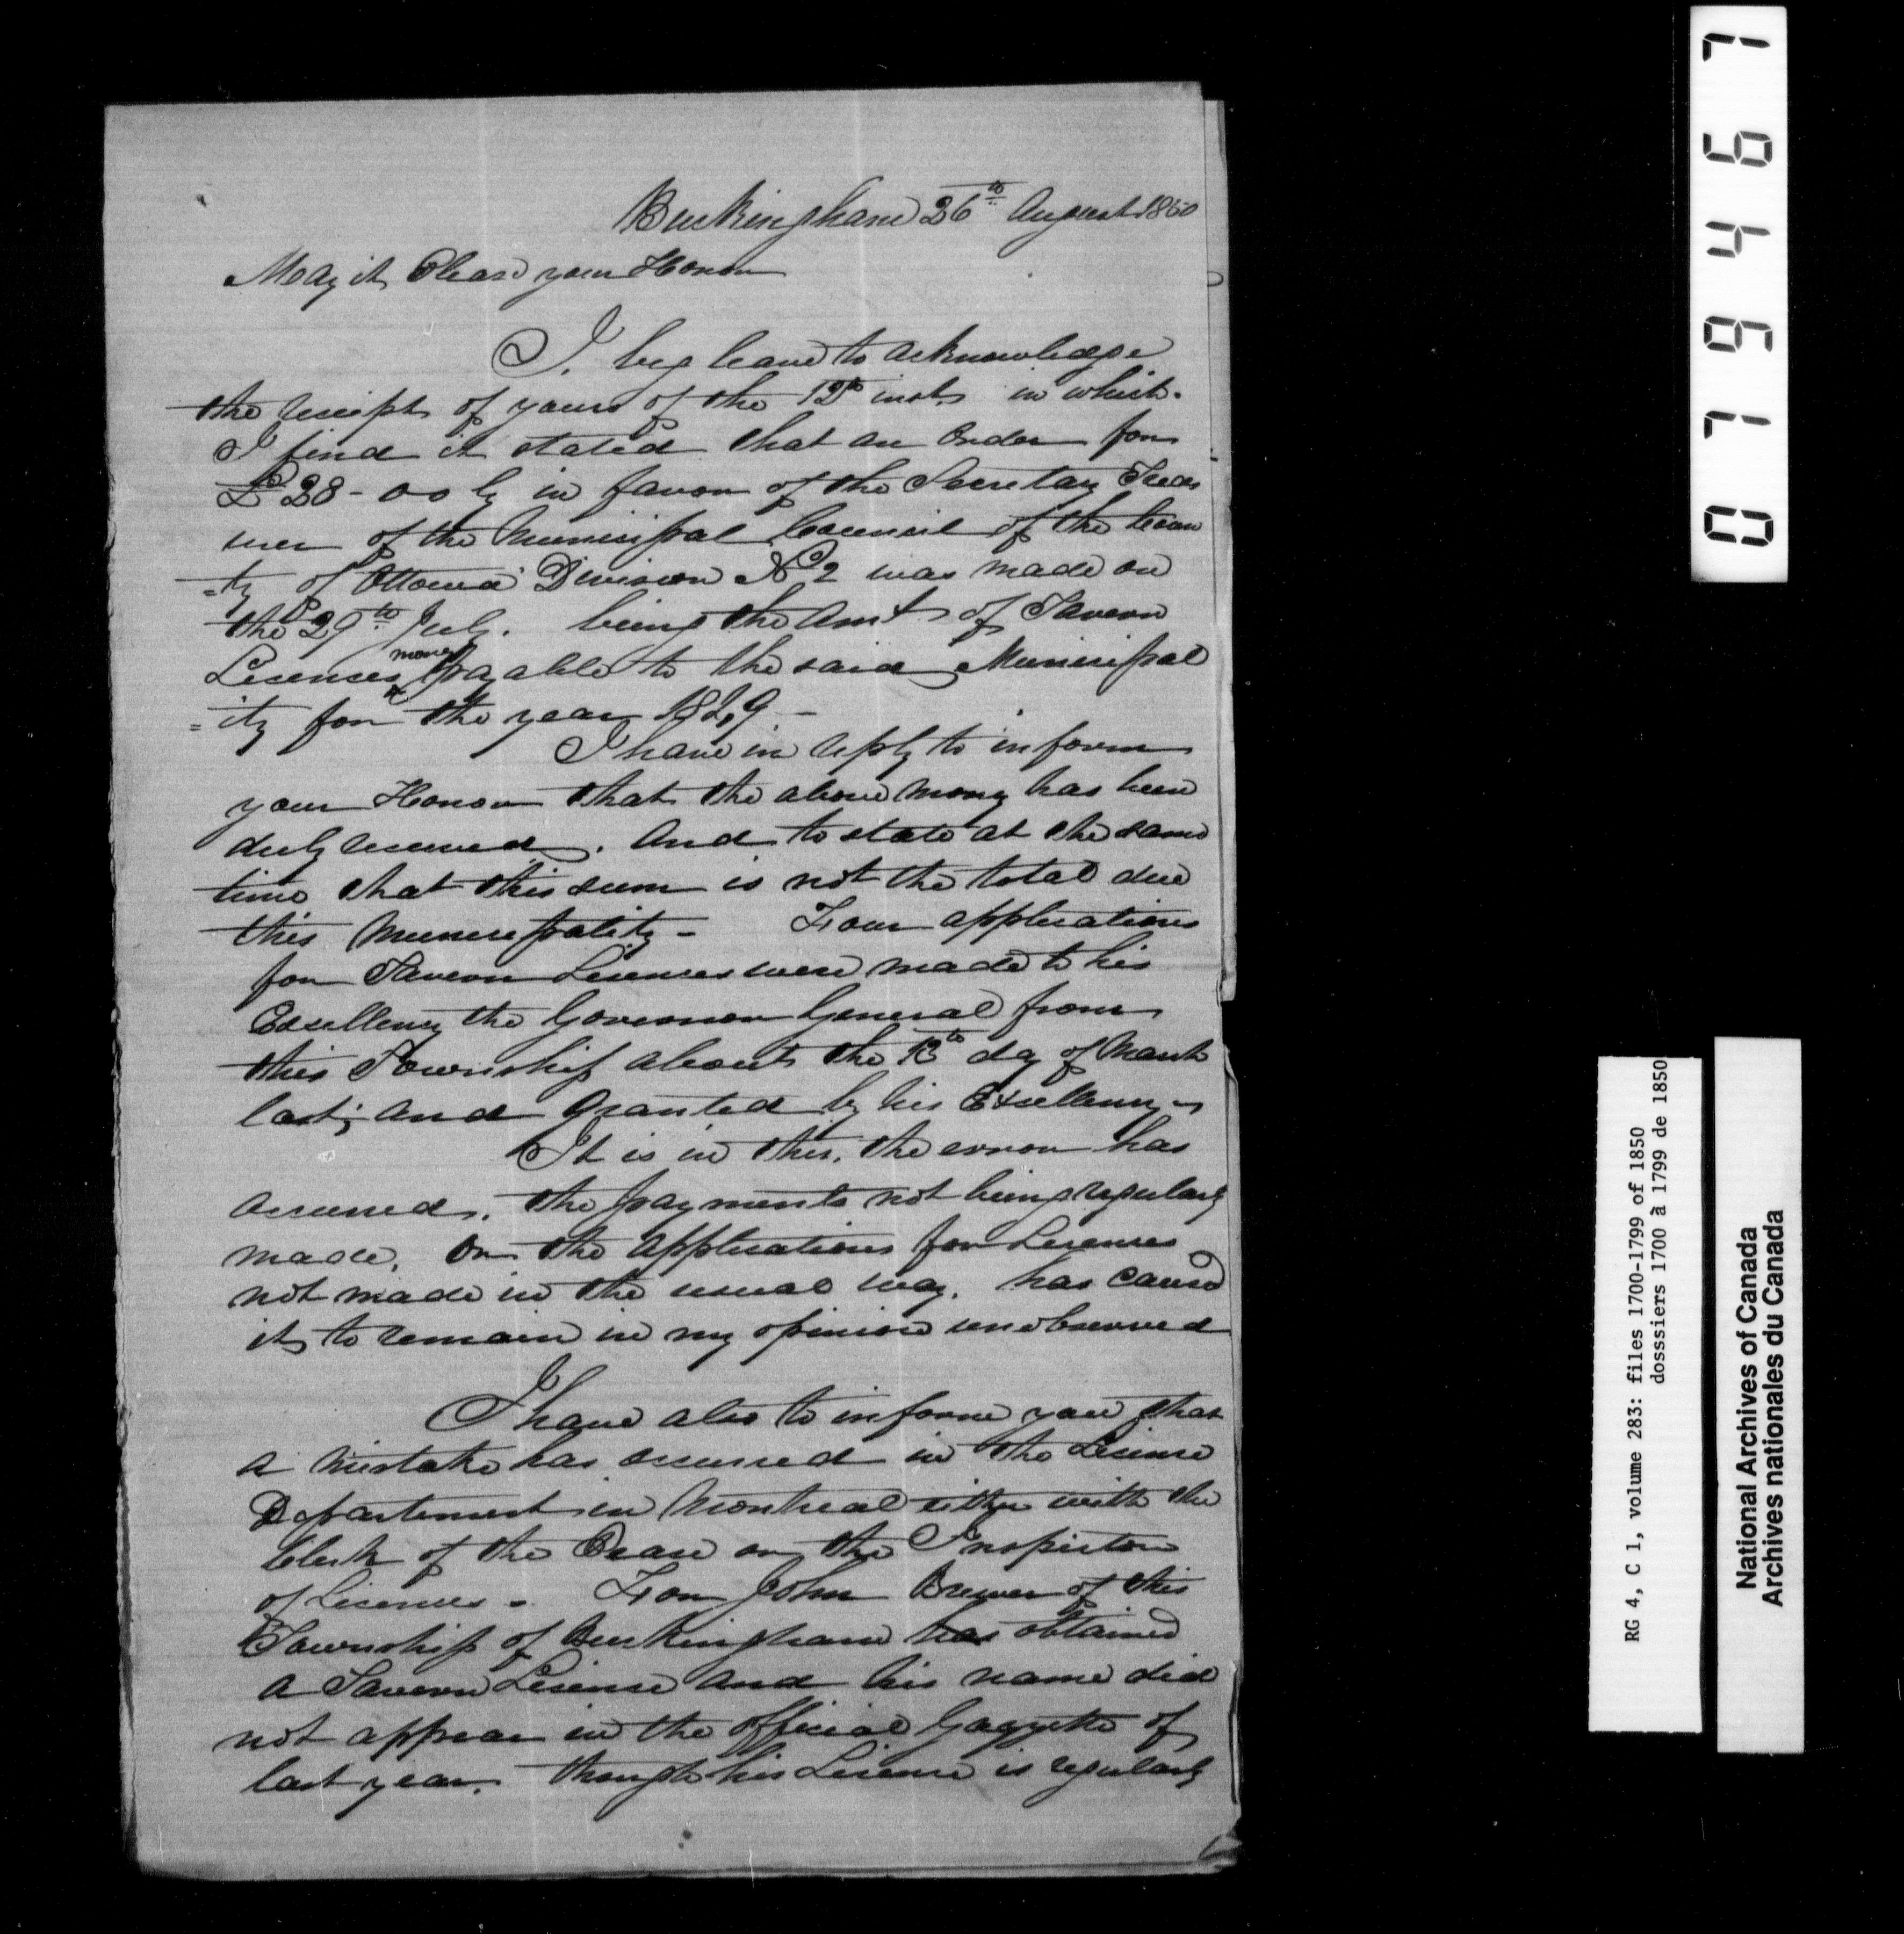 Buckingham 26th August 1850
May it Please your Honor
I beg leave to acknowledge
the receipt of yours of the 12th inst. in which
I find it stated that an Order for
£28-0-0 Cy in favor of the Secretary Treas
urer of the Municipal Council of the Coun
=ty of Ottawa Division No 2 was made on
the 29th July. being the Amt of Tavern
Licenses money payable to the said Municipal
=ity for the year 1849 -
I have in reply to inform
your Honor that the above mony has been
duly received. And to state at the same
time that this sum is not the total due
this Municipality - Four applications
for Tavern Licenses were made to his
Excellency the Governor General from
this Township about the 13th day of March
last; and granted by his Excellency -
It is in this, the error has
occurred. the payments not being regularly
made, Or the applications for Licenses
not made in the usual way. has caused
it, to remain in my opinion unobserved
I have also to inform you that
a mistake has occurred in the License
Department in Montreal either with the
Clerk of the Peace or the Inspector
of Licenses - For John Brewer of this
Township of Buckingham has obtained
a Tavern License and his name did
not appear in the official Gazzette of
last year. though his License is regularly
079467
RG 4, C 1, volume 283: files 1700-1799 of 1850
dosssiers 1700 à 1799 de 1850
National Archives of Canada
Archives nationales du Canada